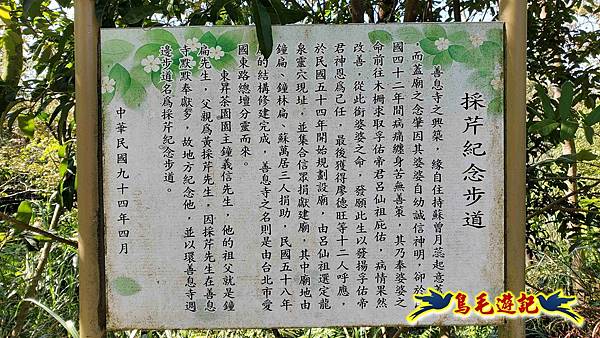 採芹紀念步道
善息寺之興築，緣自住持蘇曾月蕊起意
，而蓋廟之念肇因其婆婆自幼誠信神明，卻於民
國四十二年間病痛纏身苦無善策，其乃奉婆婆之
命前往木柵求取孚佑帝君呂仙祖庇佑，病情果然
改善，從此銜婆婆之命，發願此生以發揚孚佑帝
君神恩為己任，最後獲得廖德旺等十二人呼應，
於民國五十四年開始規劃設廟，由呂仙祖選定龍
泉靈穴現址，並集合信眾捐獻建廟，其中廟地由
鐘扁、鐘林扁、蘇萬居三人捐助，民國五十八年
的結構修建完成，善息寺之名則是由台北市愛
國東路總壇分靈而來。
東昇茶園園主鐘義信先生，他的祖父就是鐘
扁先生，父親為黃採芹先生，因採芹先生在善息
寺默默奉獻多，故地方紀念他，並以環善息寺週
邊步道名為採芹紀念步道。
中華民國九十四年四月
鳥毛遊記